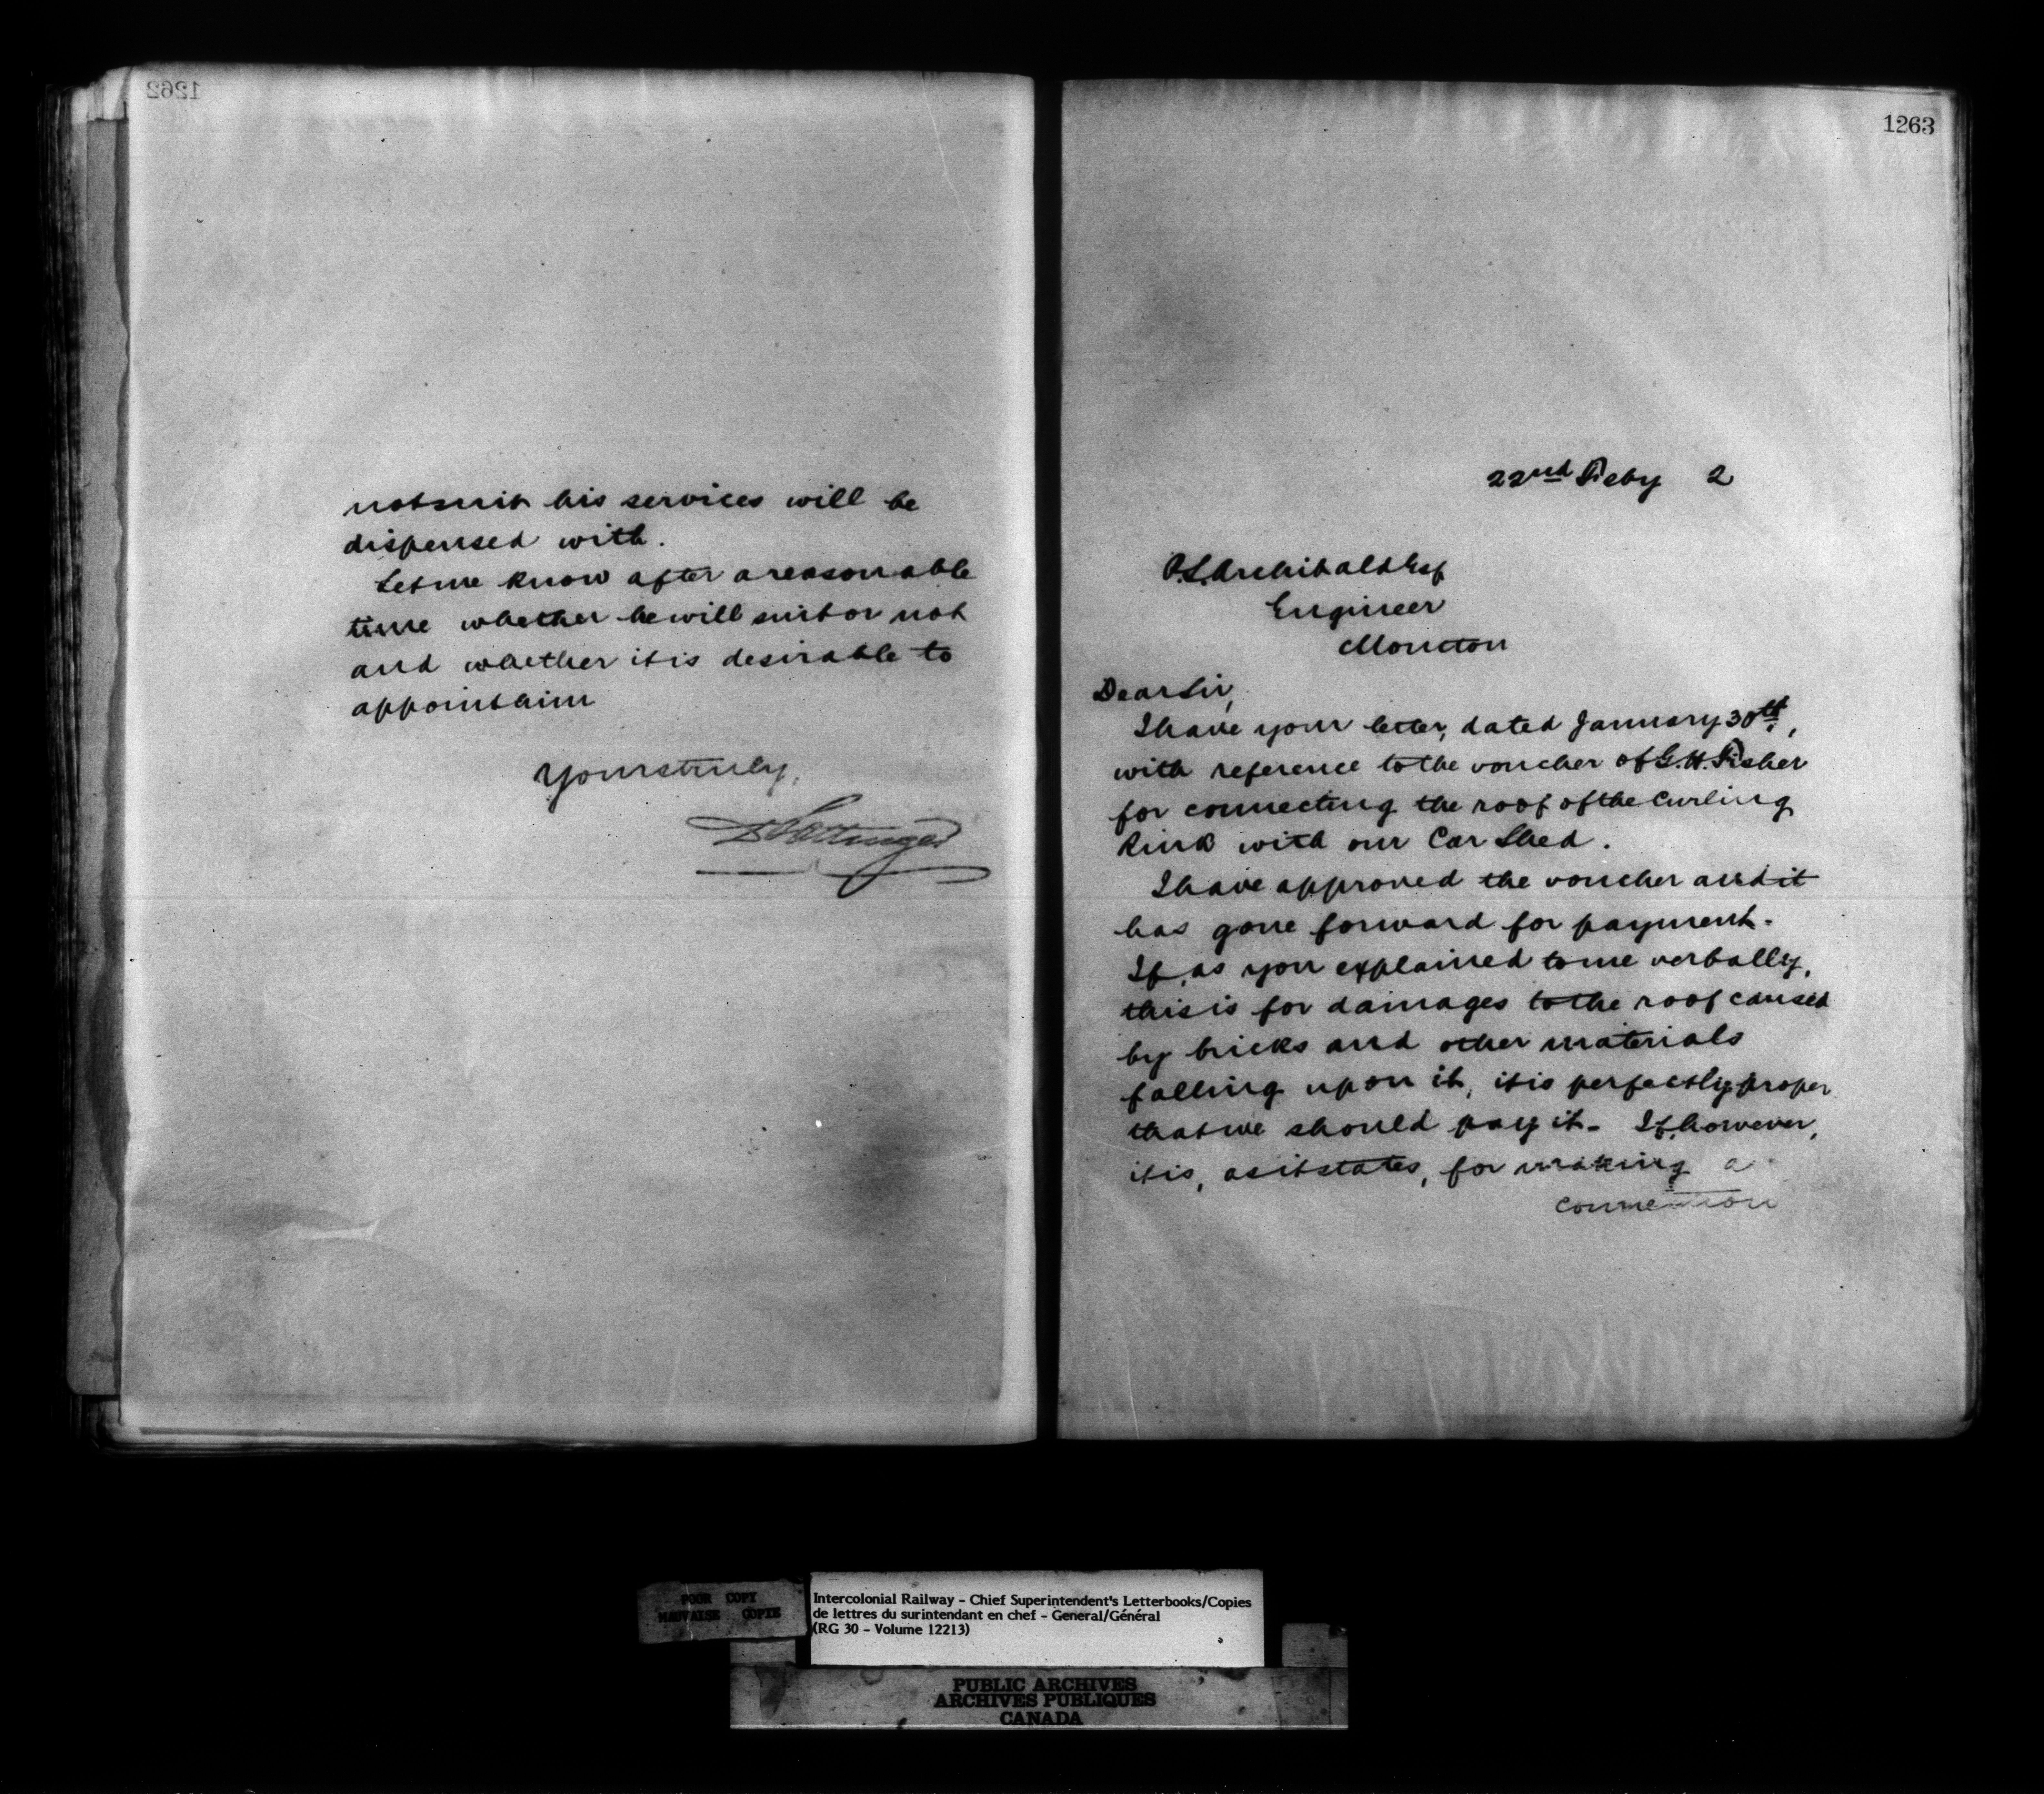 1262
not suit his services will be
dispensed with.
Let me know after a reasonable
time whether he will suit or not
and whether it is desirable to
appoint him
Yours truly,
D Pottinger
1263
22nd Feby 2
P.S. Archibald Esq
Engineer
Moncton
Dear Sir,
I have your letter, dated January 30th,
with reference to the voucher of G.H. Fisher
for connecting the roof of the Curling
Rink with our Car Shed.
I have approved the voucher and it
has gone forward for payment.
If, as you explained to me verbally,
this is for damages to the roof caused
by bricks and other materials
falling upon it, it is perfectly proper
that we should pay it. If, however,
it is, as it states, for making a
connection
POOR COPY
MAUVAISE COPIE
Intercolonial Railway - Chief Superintendent's Letterbooks/Copies
de lettres du surintendant en chef - General/Général
(RG 30 - Volume 12213)
PUBLIC ARCHIVES
ARCHIVES PUBLIQUES
CANADA